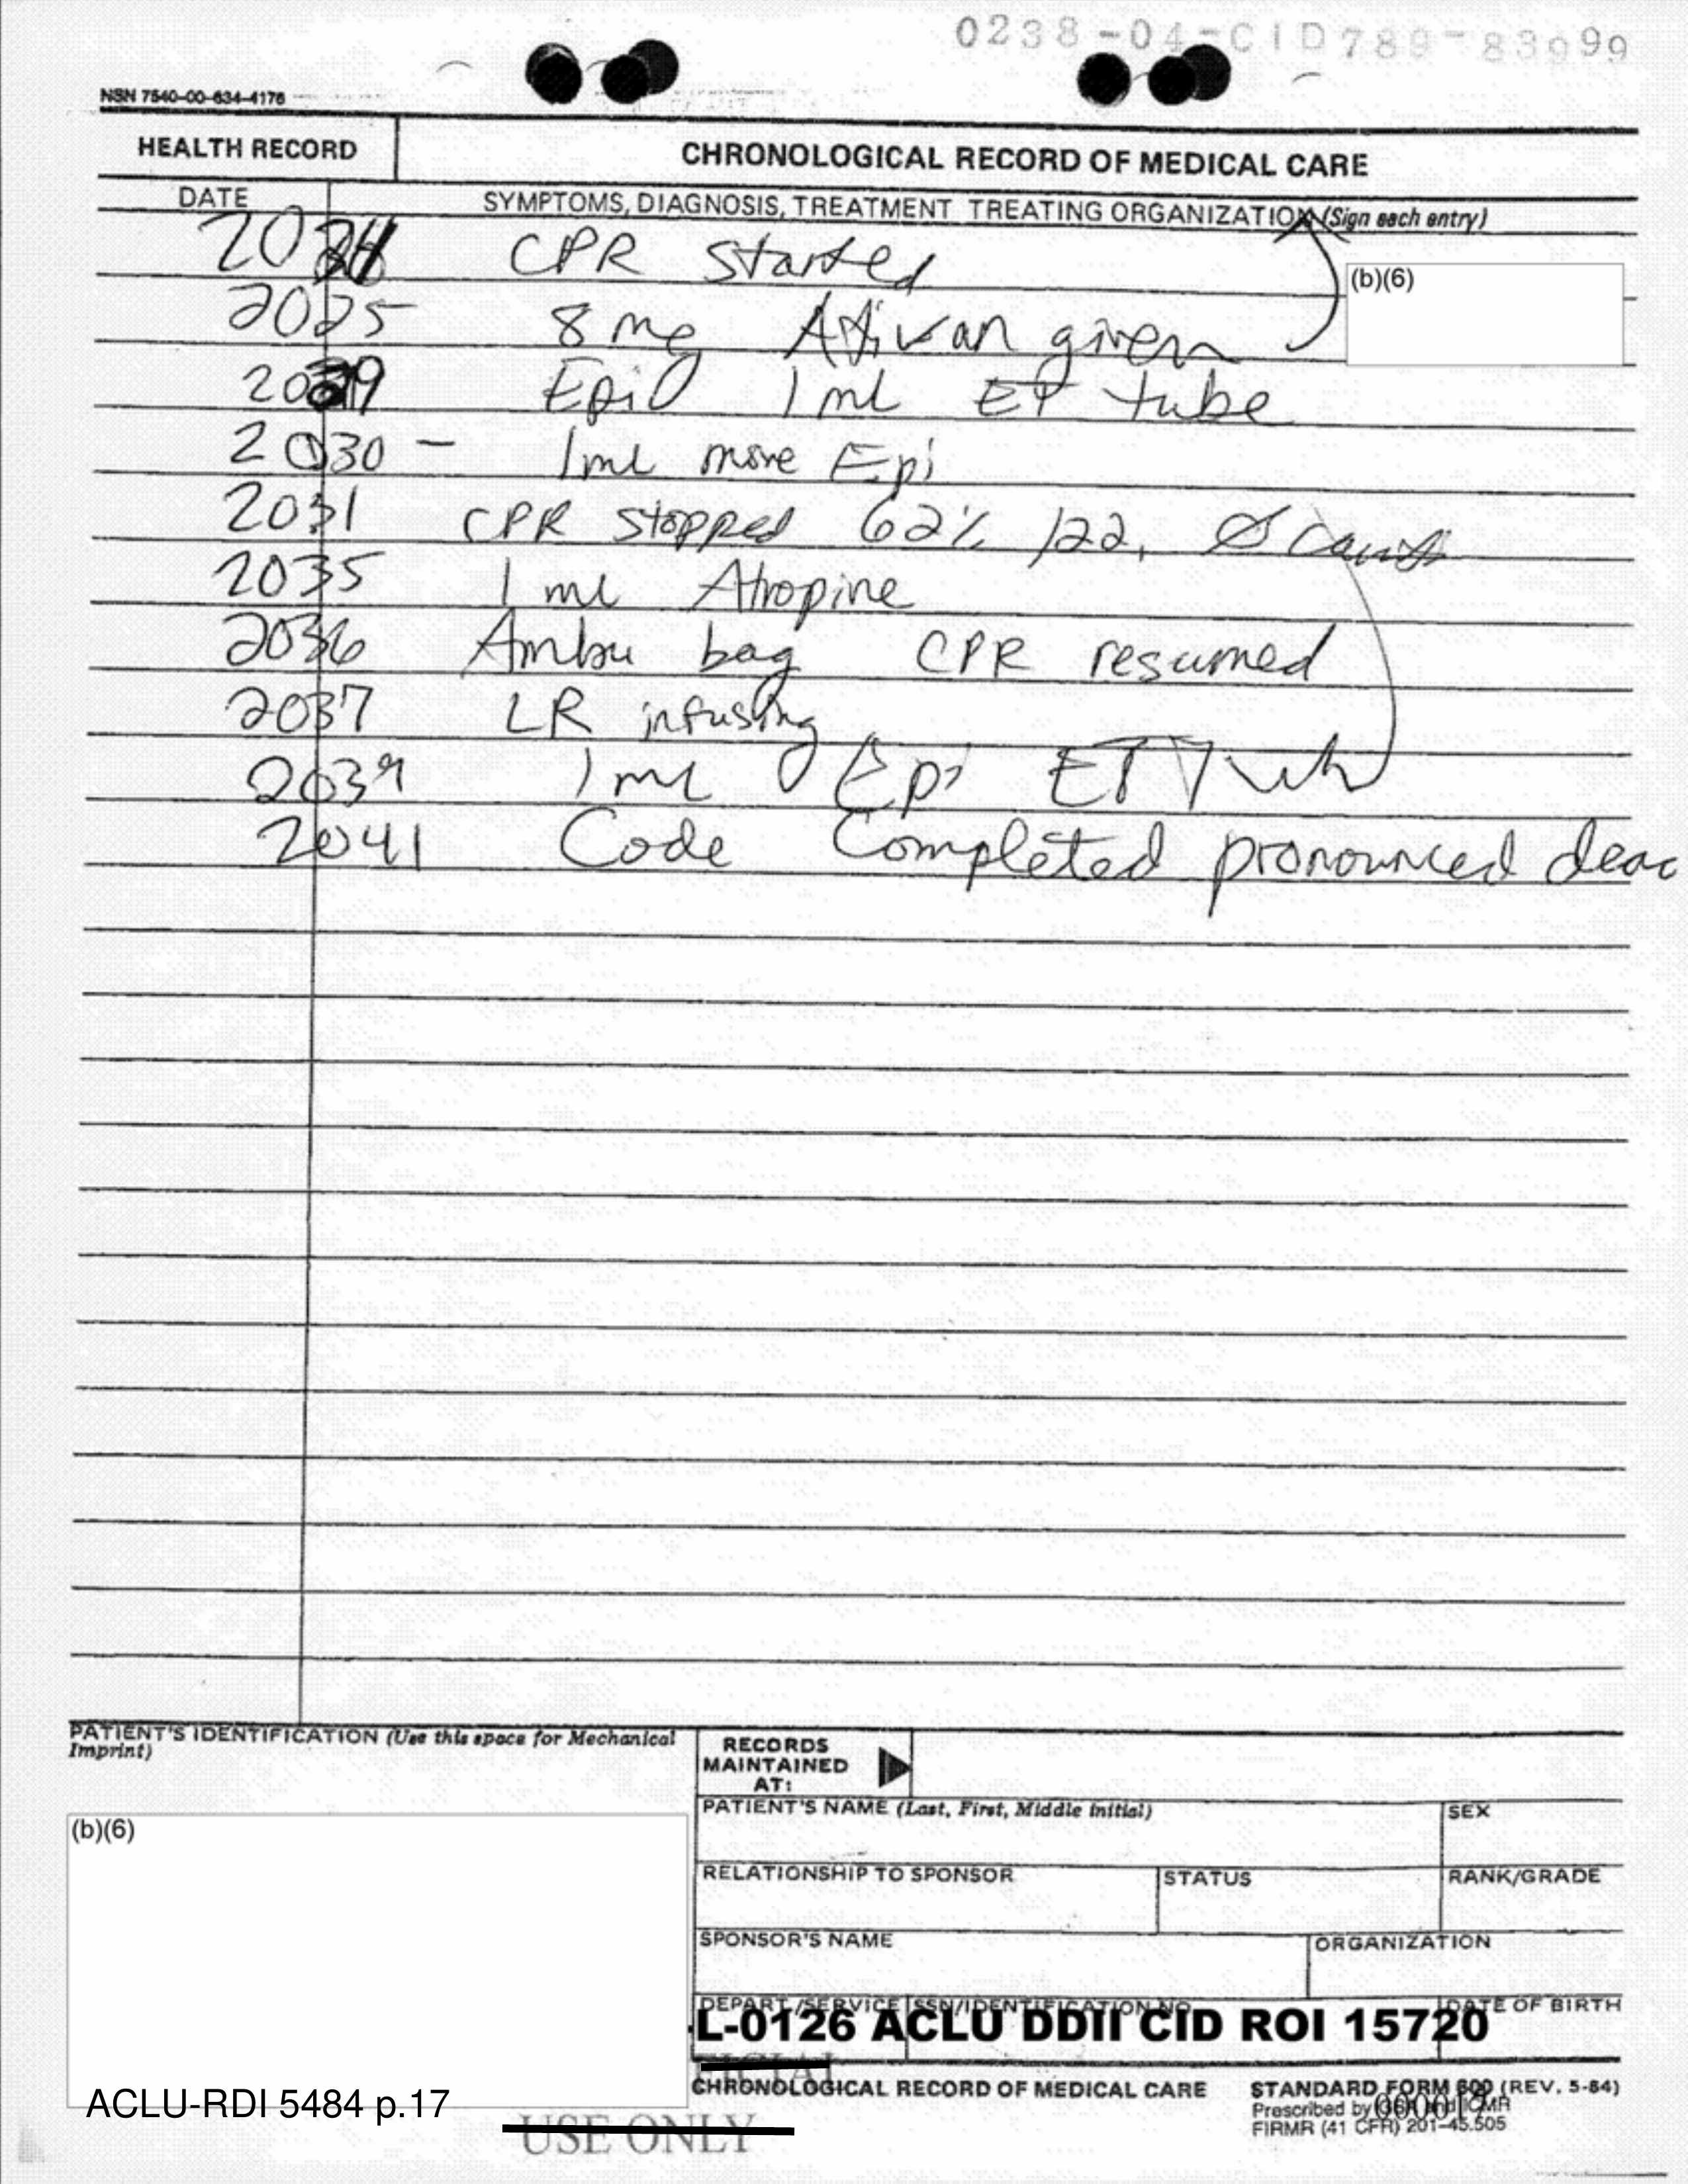 0238-04-CID789-83999
NSN 7540-00-634-4176
HEALTH RECORD
CHRONOLOGICAL RECORD OF MEDICAL CARE
DATE
SYMPTOMS, DIAGNOSIS, TREATMENT TREATING ORGANIZATION (Sign each entry)
CPR Started
(b)(6)
2025 8 mg Ativan given
Epi 1 ml ET tube
2030 - 1ml more Epi
2031 CPR stopped 62% 122, Ø
2035 1 ml Atropine
2036 Ambu bag CPR resumed
2037 LR infusing
2039 1 ml Epi ET
2041 Code Completed pronounced dead
PATIENT'S IDENTIFICATION (Use this space for Mechanical Imprint)
RECORDS MAINTAINED AT:
PATIENT'S NAME (Last, First, Middle initial)
SEX
(b)(6)
RELATIONSHIP TO SPONSOR
STATUS
RANK/GRADE
SPONSOR'S NAME
ORGANIZATION
DEPART./SERVICE
SSN/IDENTIFICATION NO.
DATE OF BIRTH
L-0126 ACLU DDII CID ROI 15720
CHRONOLOGICAL RECORD OF MEDICAL CARE
STANDARD FORM 600 (REV. 5-84)
Prescribed by GSA and ICMR
FIRMR (41 CFR) 201-45.505
ACLU-RDI 5484 p.17
USE ONLY